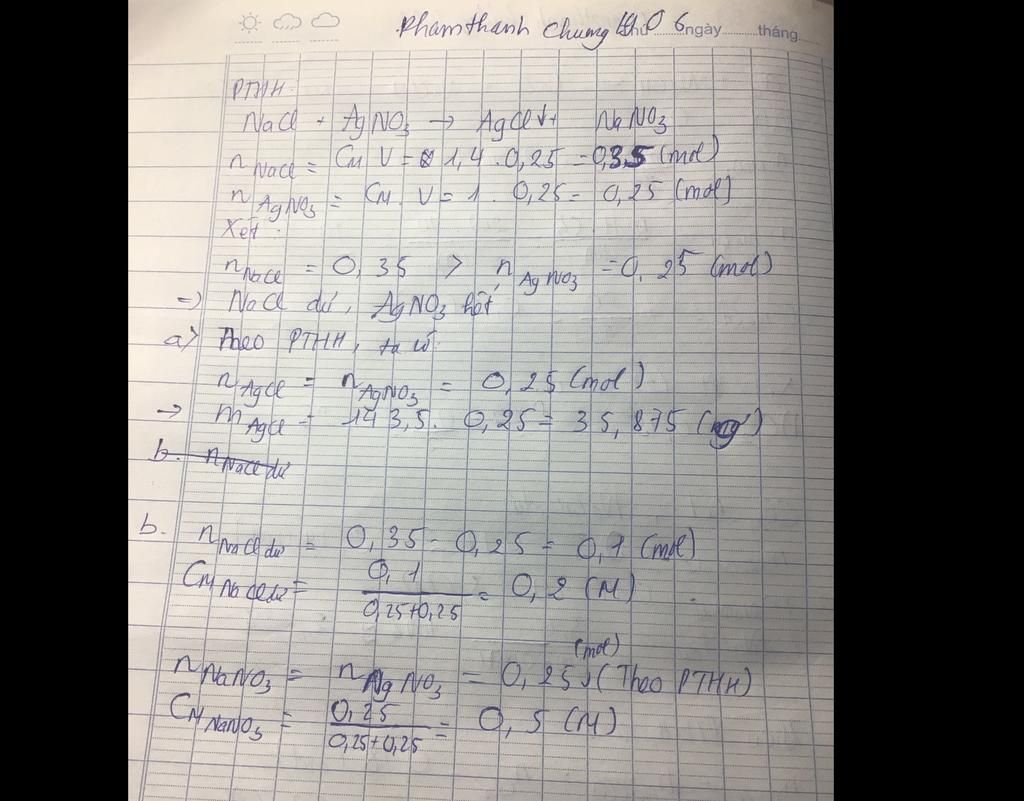 Phạm thành Chung 6ngày.........tháng
PTHH
NaCl + AgNO₃ → AgCl↓ + NaNO₃
n NaCl = CM V = 1,4 . 0,25 = 0,35 (mol)
n AgNO₃ = CM . V = 1 . 0,25 = 0,25 (mol)
Xét
n NaCl = 0,35 > n AgNO₃ = 0,25 (mol)
=> NaCl dư, AgNO₃ hết
a) Theo PTHH, ta có
n AgCl = n AgNO₃ = 0,25 (mol)
→ m AgCl = 143,5 . 0,25 = 35,875 (g)
b. n NaCl dư
b. n NaCl dư = 0,35 - 0,25 = 0,1 (mol)
CM NaCl dư = 0,1 / 0,25+0,25 = 0,2 (M)
n NaNO₃ = n AgNO₃ = 0,25 (mol) (Theo PTHH)
CM NaNO₃ = 0,25 / 0,25+0,25 = 0,5 (M)